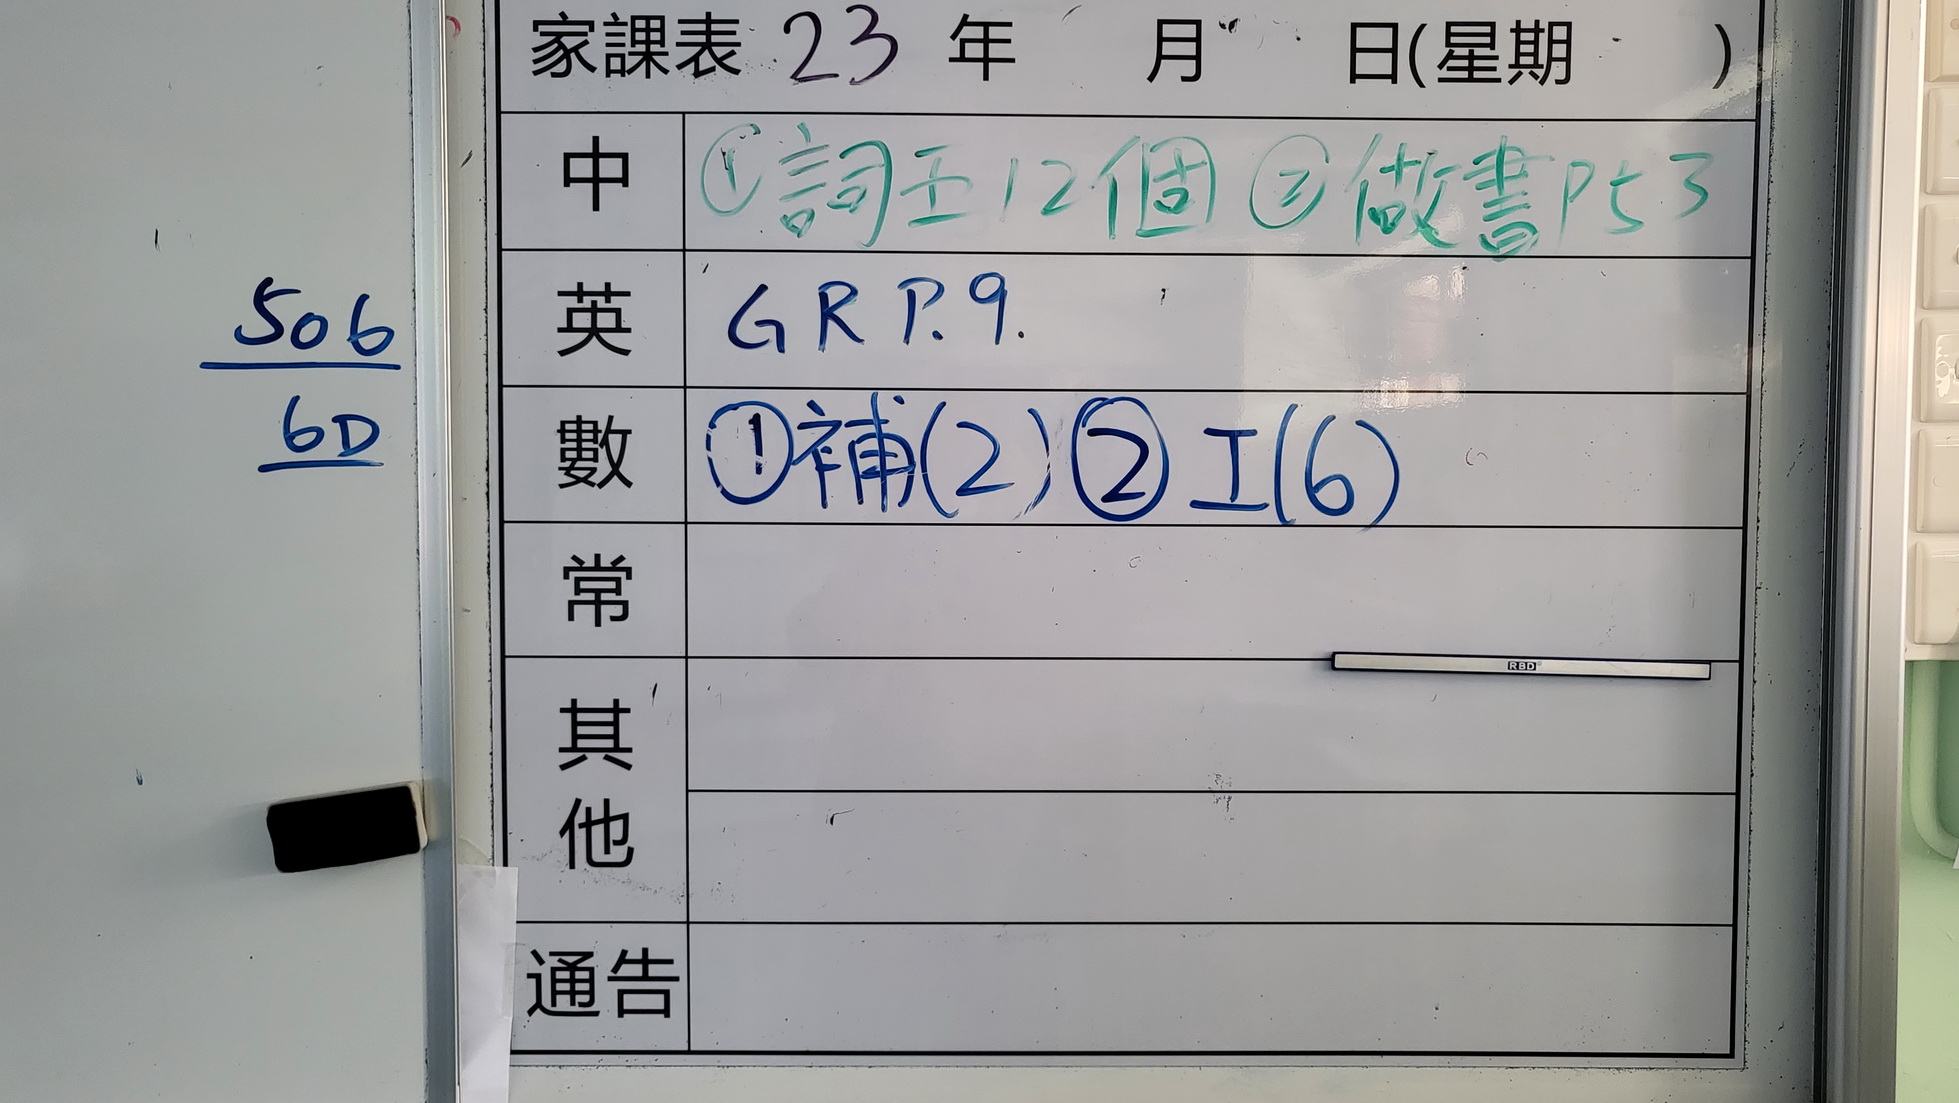 家課表 23 年 月 日(星期 )
中 ①詞王12個 ②做書P53
506
6D
英 GR P.9.
數 ①補(2) ②工(6)
常
RBD
其他
通告